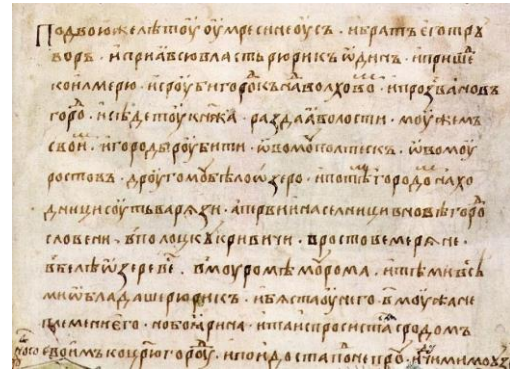 Подвоюжелѣтоу оумресинеоусъ · ибратъеготрꙋ
воръ · иприꙗвсювластьрюрикъѡдинъ · иприше
коилмерю · исроубигородокънадволховомъ · ипрозванов
горо · исѣдетоукнѧжа · раздаѧволости · моужемъ
свои · игородыроубити · ѡвомоуполтескъ · ѡвомоу
ростовъ · дроугомоубѣлоѡзеро · ипотѣгородо нахо
дницисоутьварѧзи · апервиинаселницивновѣгоро
словени · вполоцкъкривичи · вростовемерѧне ·
вбелѣѡзереве · вмоуромѣмоурома · итѣмивсѣ
миѡбладашерюрикъ · ибѧстаоунего · вмоужане
племениего · нобоѧрина · итаиспросистасѧродомъ
своимъкоцрюгородоу · ипоидостаподнепроу · идучимимо